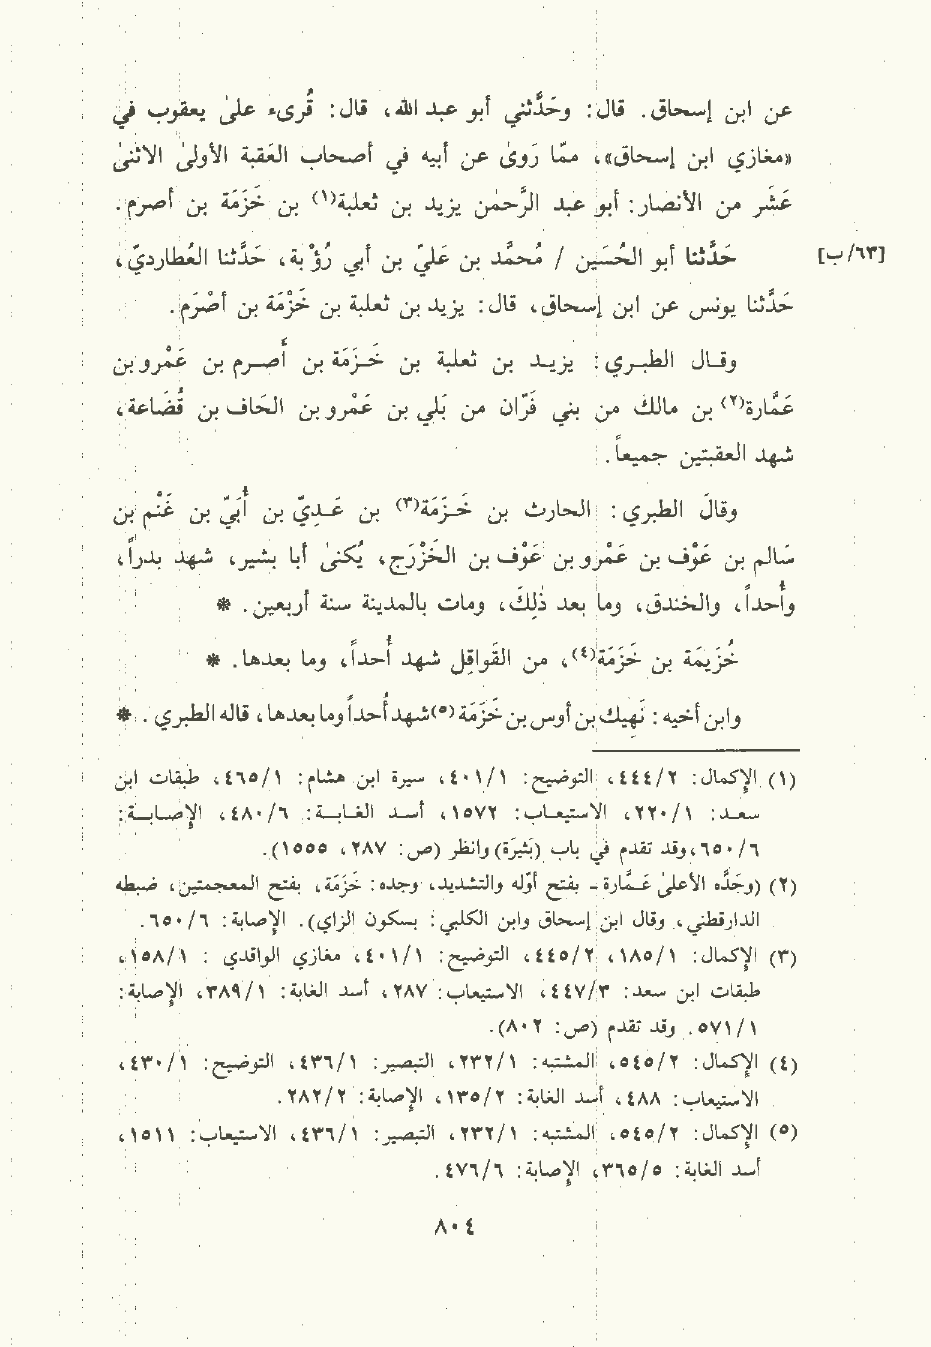 عن ابن إسحاق. قال: وحَدَّثني أبو عبد الله، قال: قُرىء علىٰ يعقوب في
«مغازي ابن إسحاق»، ممّا رَوىٰ عن أبيه في أصحاب العَقبة الأولىٰ الاثنىٰ
عَشر من الأنصار: أبو عبد الرَّحمٰن يزيد بن ثعلبة(١) بن خَزَمَة بن أصرم.
[٦٣/ب] حَدَّثنا أبو الحُسَين / محمَّد بن عَليّ بن أبي رُؤْبة، حَدَّثنا العُطارديّ،
حَدَّثنا يونس عن ابن إسحاق، قال: يزيد بن ثعلبة بن خَزْمَة بن أصْرَم.
وقـال الطبـري: يزيـد بن ثعلبة بن خَـزَمَة بن أَصـرم بن عَمْرو بن
عَمَّارة(٢) بن مالك من بني فَرّان من بَلي بن عَمْرو بن الحَاف بن قُضَاعة،
شهد العقبتين جميعاً.
وقالَ الطبري: الحارث بن خَـزَمَة(٣) بن عَـدِيّ بن أُبَيّ بن غَنْم بن
سَالم بن عَوْف بن عَمْرو بن عَوْف بن الخَزْرَج، يُكنىٰ أبا بشير، شهد بدراً،
وأُحداً، والخندق، وما بعد ذلِكَ، ومات بالمدينة سنة أربعين. *
خُزَيمَة بن خَزَمَة(٤)، من القَواقِل شهد أُحداً، وما بعدها. *
وابن أخيه: نَهِيك بن أوس بن خَزَمَة(٥) شهد أُحداً وما بعدها، قاله الطبري. *
(١) الإكمال: ٢/٤٤٤، التوضيح: ٤٠١/١، سيرة ابن هشام: ٤٦٥/١، طبقات ابن
سعـد: ٢٢٠/١، الاستيعـاب: ١٥٧٢، أسـد الغـابـة: ٤٨٠/٦، الإصـابـة:
٦٥٠/٦، وقد تقدم في باب (بَثِيرَة) وانظر (ص: ٢٨٧، ١٥٥٥).
(٢) (وجَدّه الأعلىٰ عَـمَّارة - بفتح أوّله والتشديد، وجده: خَزَمَة، بفتح المعجمتين، ضبطه
الدارقطني، وقال ابن إسحاق وابن الكلبي: بسكون الزاي). الإصابة: ٦٥٠/٦.
(٣) الإكمال: ١٨٥/١، ٤٤٥/٢، التوضيح: ٤٠١/١، مغازي الواقدي: ١٥٨/١،
طبقات ابن سعد: ٤٤٧/٣، الاستيعاب: ٢٨٧، أسد الغابة: ٣٨٩/١، الإصابة:
٥٧١/١. وقد تقدم (ص: ٨٠٢).
(٤) الإكمال: ٥٤٥/٢، المشتبه: ٢٣٢/١، التبصير: ٤٣٦/١، التوضيح: ٤٣٠/١،
الاستيعاب: ٤٨٨، أسد الغابة: ١٣٥/٢، الإصابة: ٢٨٢/٢.
(٥) الإكمال: ٥٤٥/٢، المشتبه: ٢٣٢/١، التبصير: ٤٣٦/١، الاستيعاب: ١٥١١،
أسد الغابة: ٣٦٥/٥، الإصابة: ٤٧٦/٦.
٨٠٤